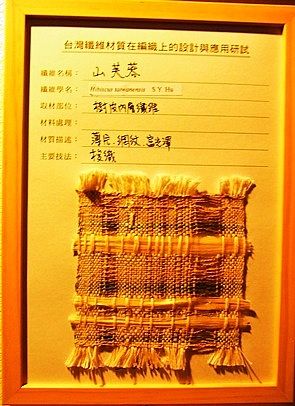 台灣纖維材質在編織上的設計與應用研試
纖維名稱：山芙蓉
纖維學名：Hibiscus taiwanensis S.Y. Hu
取材部位：樹皮內層纖維
材料處理：
材質描述：薄片、網紋、富光澤
主要技法：梭織